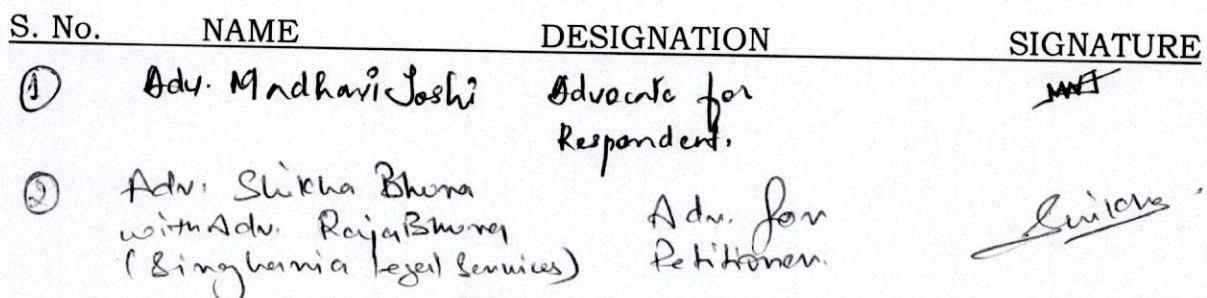 S. No. NAME DESIGNATION SIGNATURE
① Adv. Madhavi Joshi Advocate for
Respondent.
② Adv. Shikha Bhura
with Adv. Raja Bhura Adv. for
(Singhania Legal Services) Petitioner.
Shikha